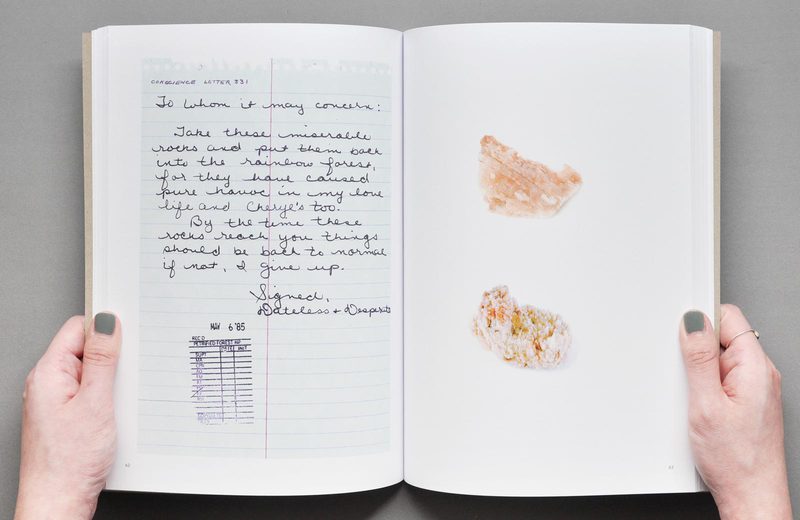 CONSCIENCE LETTER #31
To whom it may concern:
Take these miserable
rocks and put them back
into the rainbow forest,
for they have caused
pure havoc in my love
life and Cheryl's too.
By the time these
rocks reach you things
should be back to normal
if not, I give up.
Signed,
Dateless + Desperate
MAY 6 '85
REC'D
PETRIFIED FOREST NP
DATE INIT
SUPT